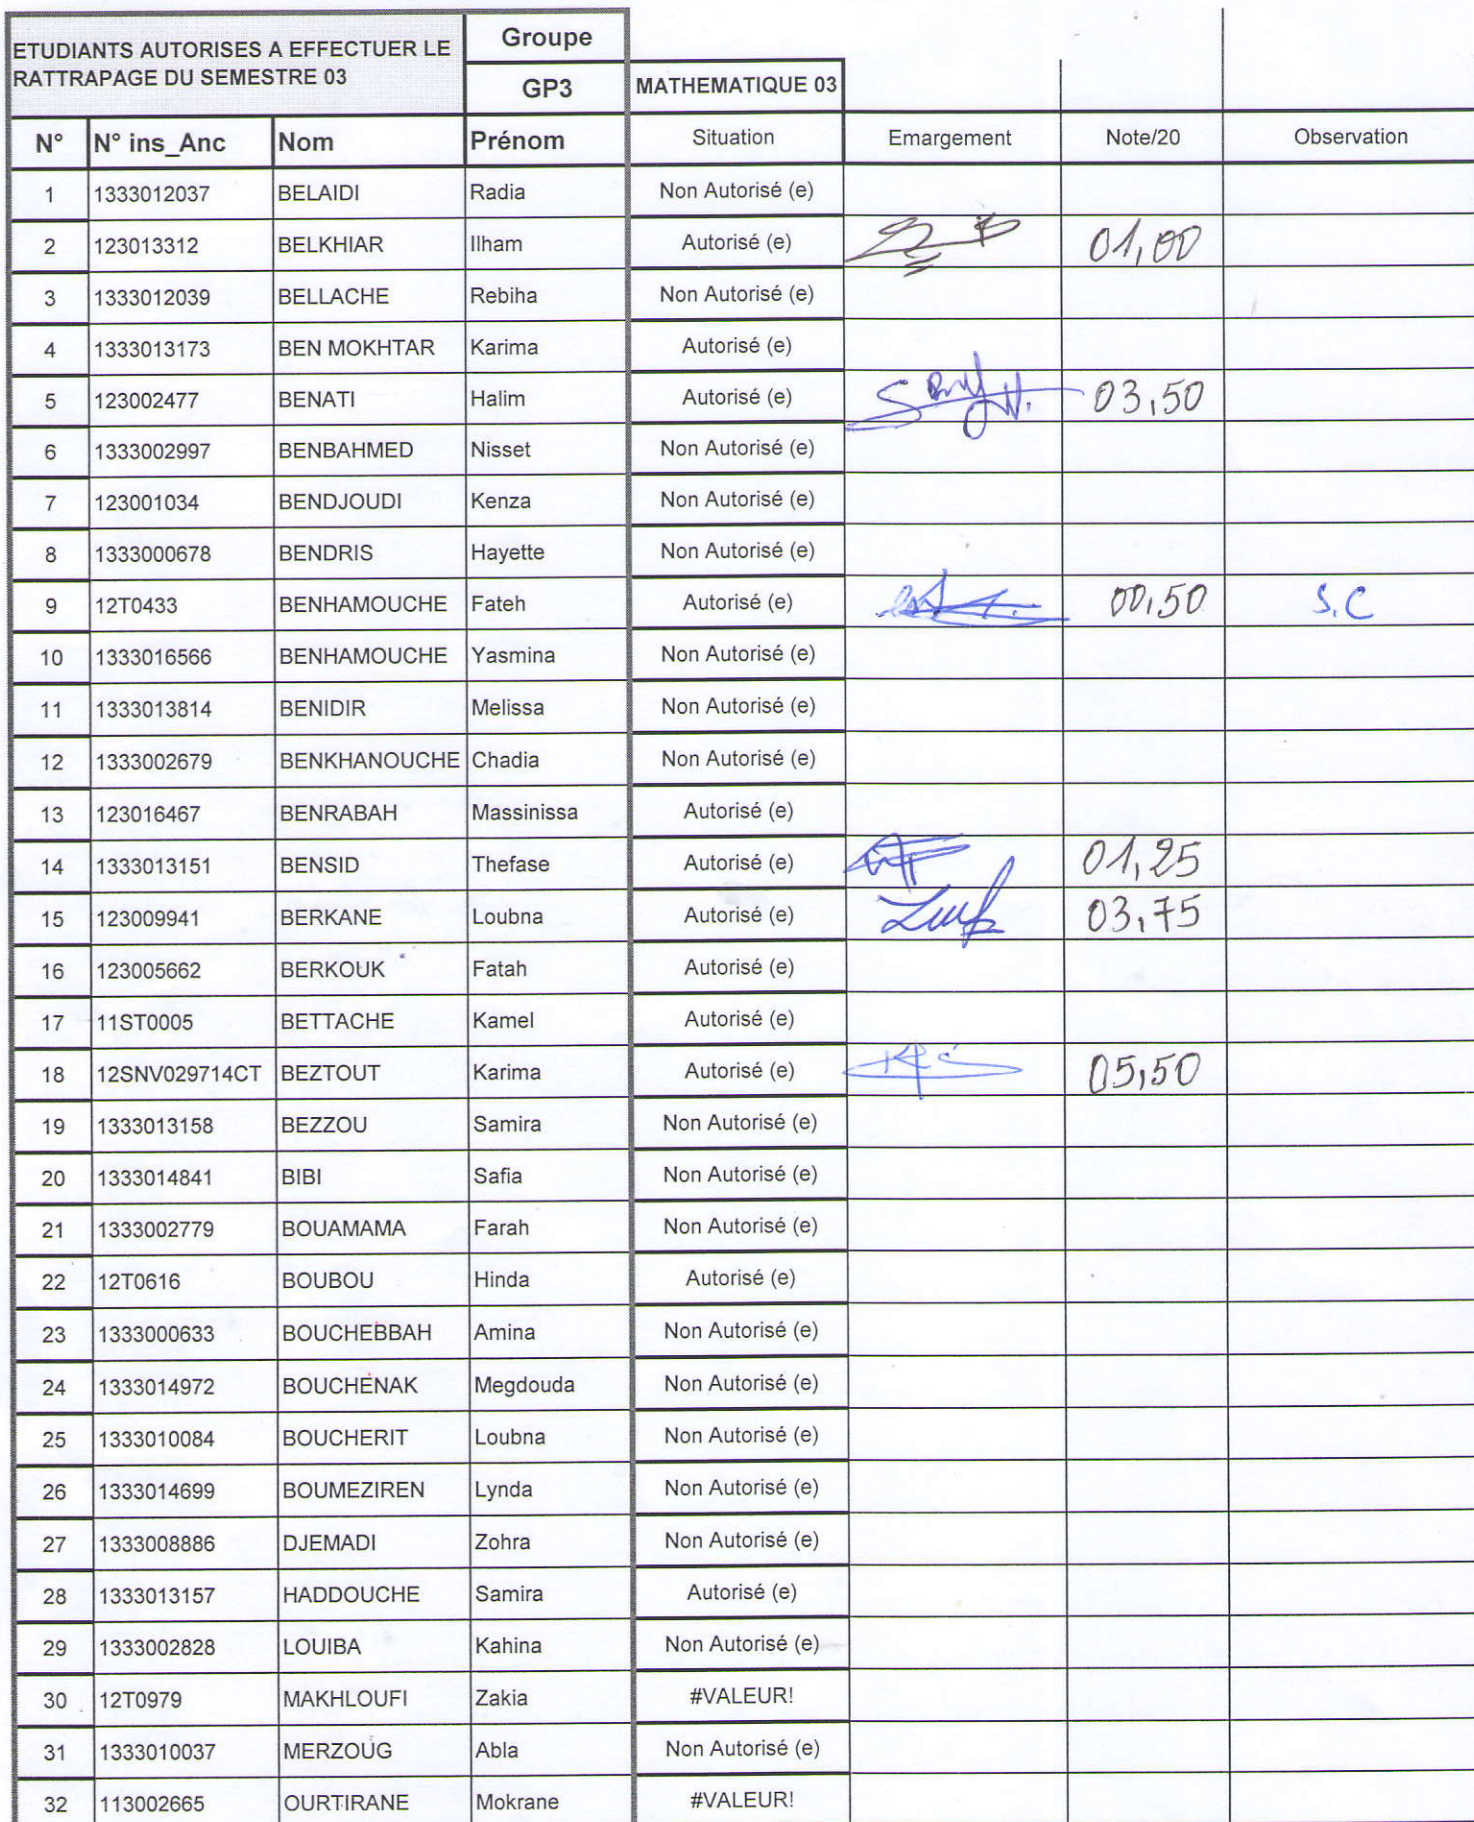 ETUDIANTS AUTORISES A EFFECTUER LE RATTRAPAGE DU SEMESTRE 03 Groupe
GP3 MATHEMATIQUE 03
N° N° ins_Anc Nom Prénom Situation Emargement Note/20 Observation
1 1333012037 BELAIDI Radia Non Autorisé (e)
2 123013312 BELKHIAR Ilham Autorisé (e) 01,00
3 1333012039 BELLACHE Rebiha Non Autorisé (e)
4 1333013173 BEN MOKHTAR Karima Autorisé (e)
5 123002477 BENATI Halim Autorisé (e) 03,50
6 1333002997 BENBAHMED Nisset Non Autorisé (e)
7 123001034 BENDJOUDI Kenza Non Autorisé (e)
8 1333000678 BENDRIS Hayette Non Autorisé (e)
9 12T0433 BENHAMOUCHE Fateh Autorisé (e) 00,50 S.C
10 1333016566 BENHAMOUCHE Yasmina Non Autorisé (e)
11 1333013814 BENIDIR Melissa Non Autorisé (e)
12 1333002679 BENKHANOUCHE Chadia Non Autorisé (e)
13 123016467 BENRABAH Massinissa Autorisé (e)
14 1333013151 BENSID Thefase Autorisé (e) 01,25
15 123009941 BERKANE Loubna Autorisé (e) 03,75
16 123005662 BERKOUK Fatah Autorisé (e)
17 11ST0005 BETTACHE Kamel Autorisé (e)
18 12SNV029714CT BEZTOUT Karima Autorisé (e) 05,50
19 1333013158 BEZZOU Samira Non Autorisé (e)
20 1333014841 BIBI Safia Non Autorisé (e)
21 1333002779 BOUAMAMA Farah Non Autorisé (e)
22 12T0616 BOUBOU Hinda Autorisé (e)
23 1333000633 BOUCHEBBAH Amina Non Autorisé (e)
24 1333014972 BOUCHENAK Megdouda Non Autorisé (e)
25 1333010084 BOUCHERIT Loubna Non Autorisé (e)
26 1333014699 BOUMEZIREN Lynda Non Autorisé (e)
27 1333008886 DJEMADI Zohra Non Autorisé (e)
28 1333013157 HADDOUCHE Samira Autorisé (e)
29 1333002828 LOUIBA Kahina Non Autorisé (e)
30 12T0979 MAKHLOUFI Zakia #VALEUR!
31 1333010037 MERZOUG Abla Non Autorisé (e)
32 113002665 OURTIRANE Mokrane #VALEUR!